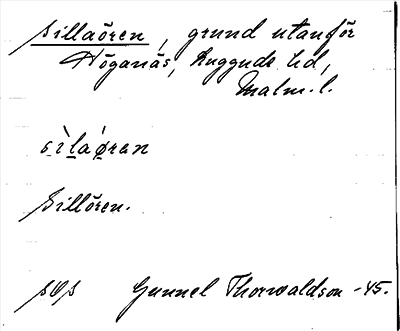 Sillaören, grund utanför
Höganäs, Luggude hd,
Malm. l.
sìlaǿran
Sillören.
SOS Gunnel Thorwaldson -45.